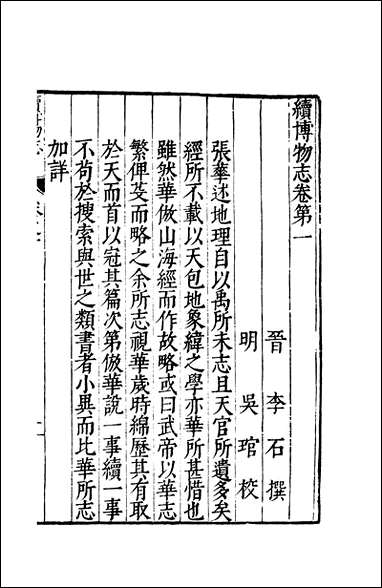 續博物志卷第一
晉 李石 撰
明 吳琯 校
張華述地理自以禹所未志且天官所遺多矣
經所不載以天包地象緯之學亦華所甚惜也
雖然華倣山海經而作故略或曰武帝以華志
繁俾芟而略之余所志視華歲時綿歷其有取
於天而首以冠其篇次第倣華說一事續一事
不苟於搜索與世之類書者小異而比華所志
加詳